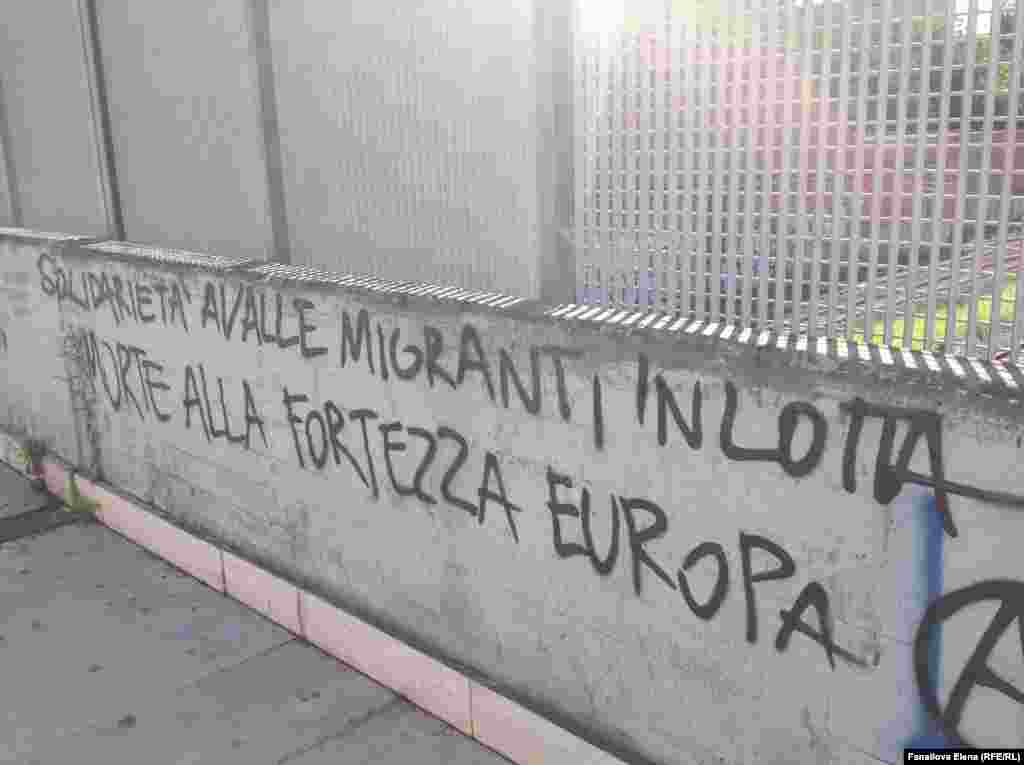 SOLIDARIETA' AVALLE MIGRANTI IN LOTTA
MORTE ALLA FORTEZZA EUROPA
A
Fanailova Elena (RFE/RL)